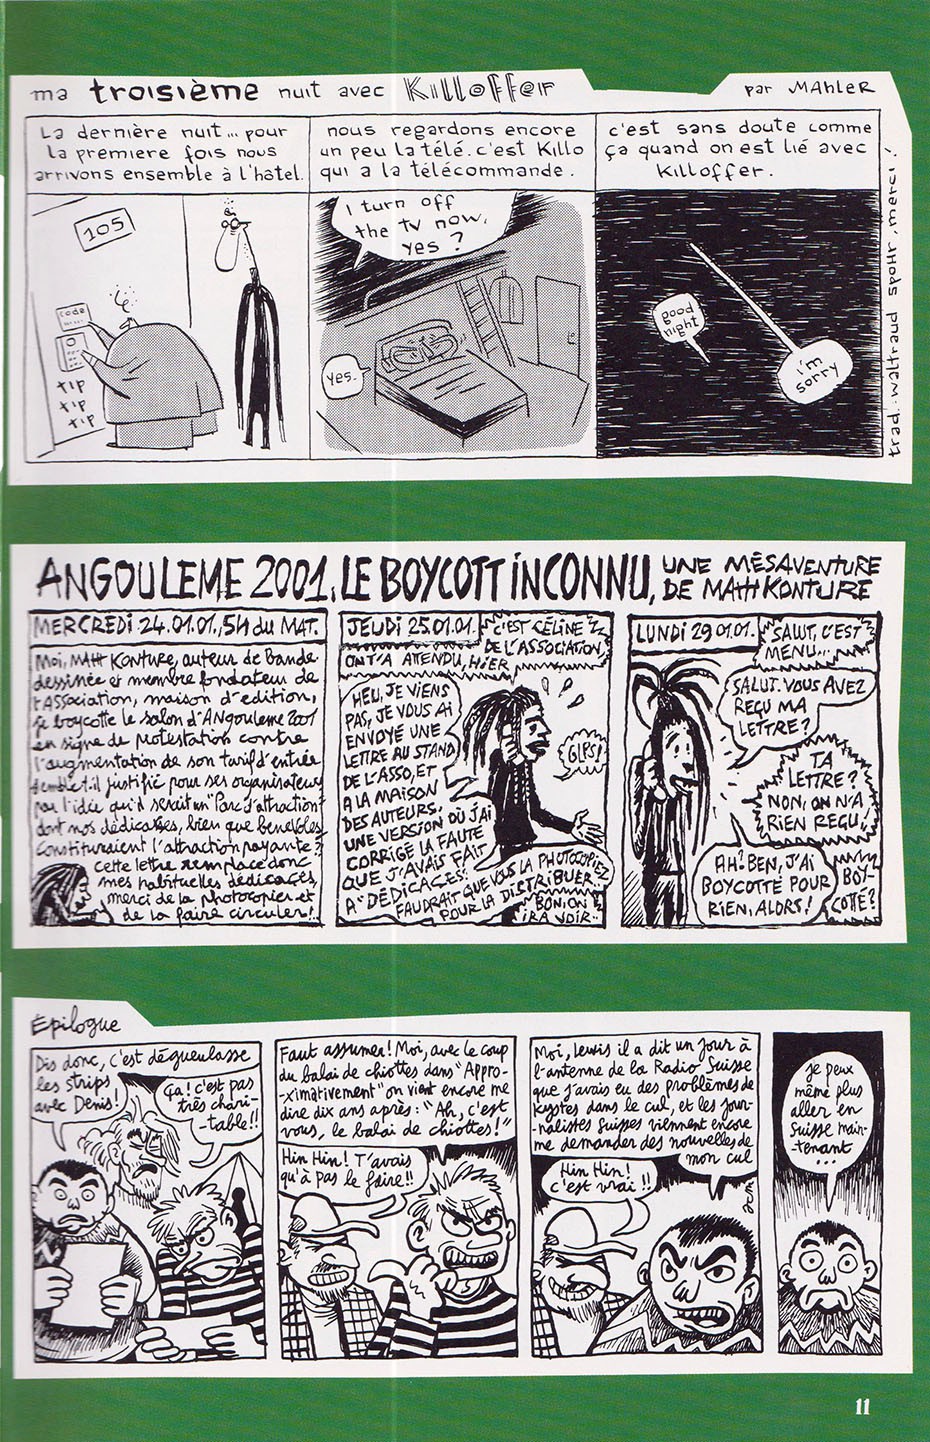 ma troisième nuit avec Killoffer
par MAHLER
La dernière nuit... pour
la première fois nous
arrivons ensemble à l'hôtel.
105
code
tip
tip
tip
nous regardons encore
un peu la télé. c'est Killo
qui a la télécommande.
I turn off
the TV now,
yes ?
yes.
c'est sans doute comme
ça quand on est lié avec
Killoffer.
good
night
i'm
sorry
trad: waltraud spohr, merci!
ANGOULEME 2001, LE BOYCOTT INCONNU,
UNE MÉSAVENTURE
DE MAtt KONTURE
MERCREDI 24.01.01., 5H du MAT.
Moi, MAtt KONTURE, auteur de Bande
dessinée et membre fondateur de
l'Association, maison d'edition,
je boycotte le salon d'ANgouleme 2001
en signe de protestation contre
l'augmentation de son tarif d'entrée
semble t-il justifié pour ses organisateurs
par l'idée qu'il serait un "Parc d'attraction"
dont nos dédicases, bien que benevoles,
constituraient l'attraction payante?
Cette lettre remplace donc
mes habituelles dédicaçes,
merci de la photocopier et
de la faire circuler!
JEUDI 25.01.01.
C'EST CÉLINE
DE L'ASSOCIATION,
ON T'A ATTENDU, HIER
HEU, JE VIENS
PAS, JE VOUS AI
ENVOYÉ UNE
LETTRE AU STAND
DE L'ASSO, ET
A LA MAISON
DES AUTEURS.
UNE VERSION OÙ J'AI
CORRIGÉ LA FAUTE
QUE J'AVAIS FAIT
A "DÉDICACES".
GLPS!
FAUDRAIT QUE VOUS LA PHOTOCOPIEZ
POUR LA DISTRIBUER
BON, ON
IRA VOIR..
LUNDI 29.01.01.
SALUT, C'EST
MENU...
SALUT. VOUS AVEZ
REÇU MA
LETTRE?
TA
LETTRE?
NON, ON N'A
RIEN REÇU!
AH? BEN, J'AI
BOYCOTTÉ POUR
RIEN, ALORS!
BOY-
COTTÉ?
Épilogue
Dis donc, c'est dégueulasse
les strips
avec Denis!
Ça! c'est pas
très chari-
-table!!
Faut assumer! Moi, avec le coup
du balai de chiottes dans "Appro-
-ximativement" on vient encore me
dire dix ans après: "Ah, c'est
vous, le balai de chiottes!"
Hin Hin! T'avais
qu'à pas le faire!!
Moi, Lewis il a dit un jour à
l'antenne de la Radio Suisse
que j'avais eu des problèmes de
Kystes dans le cul, et les jour-
-nalistes Suisses viennent encore
me demander des nouvelles de
mon cul
Hin Hin!
c'est vrai!!
JCM
je peux
même plus
aller en
Suisse main-
-tenant
...
11